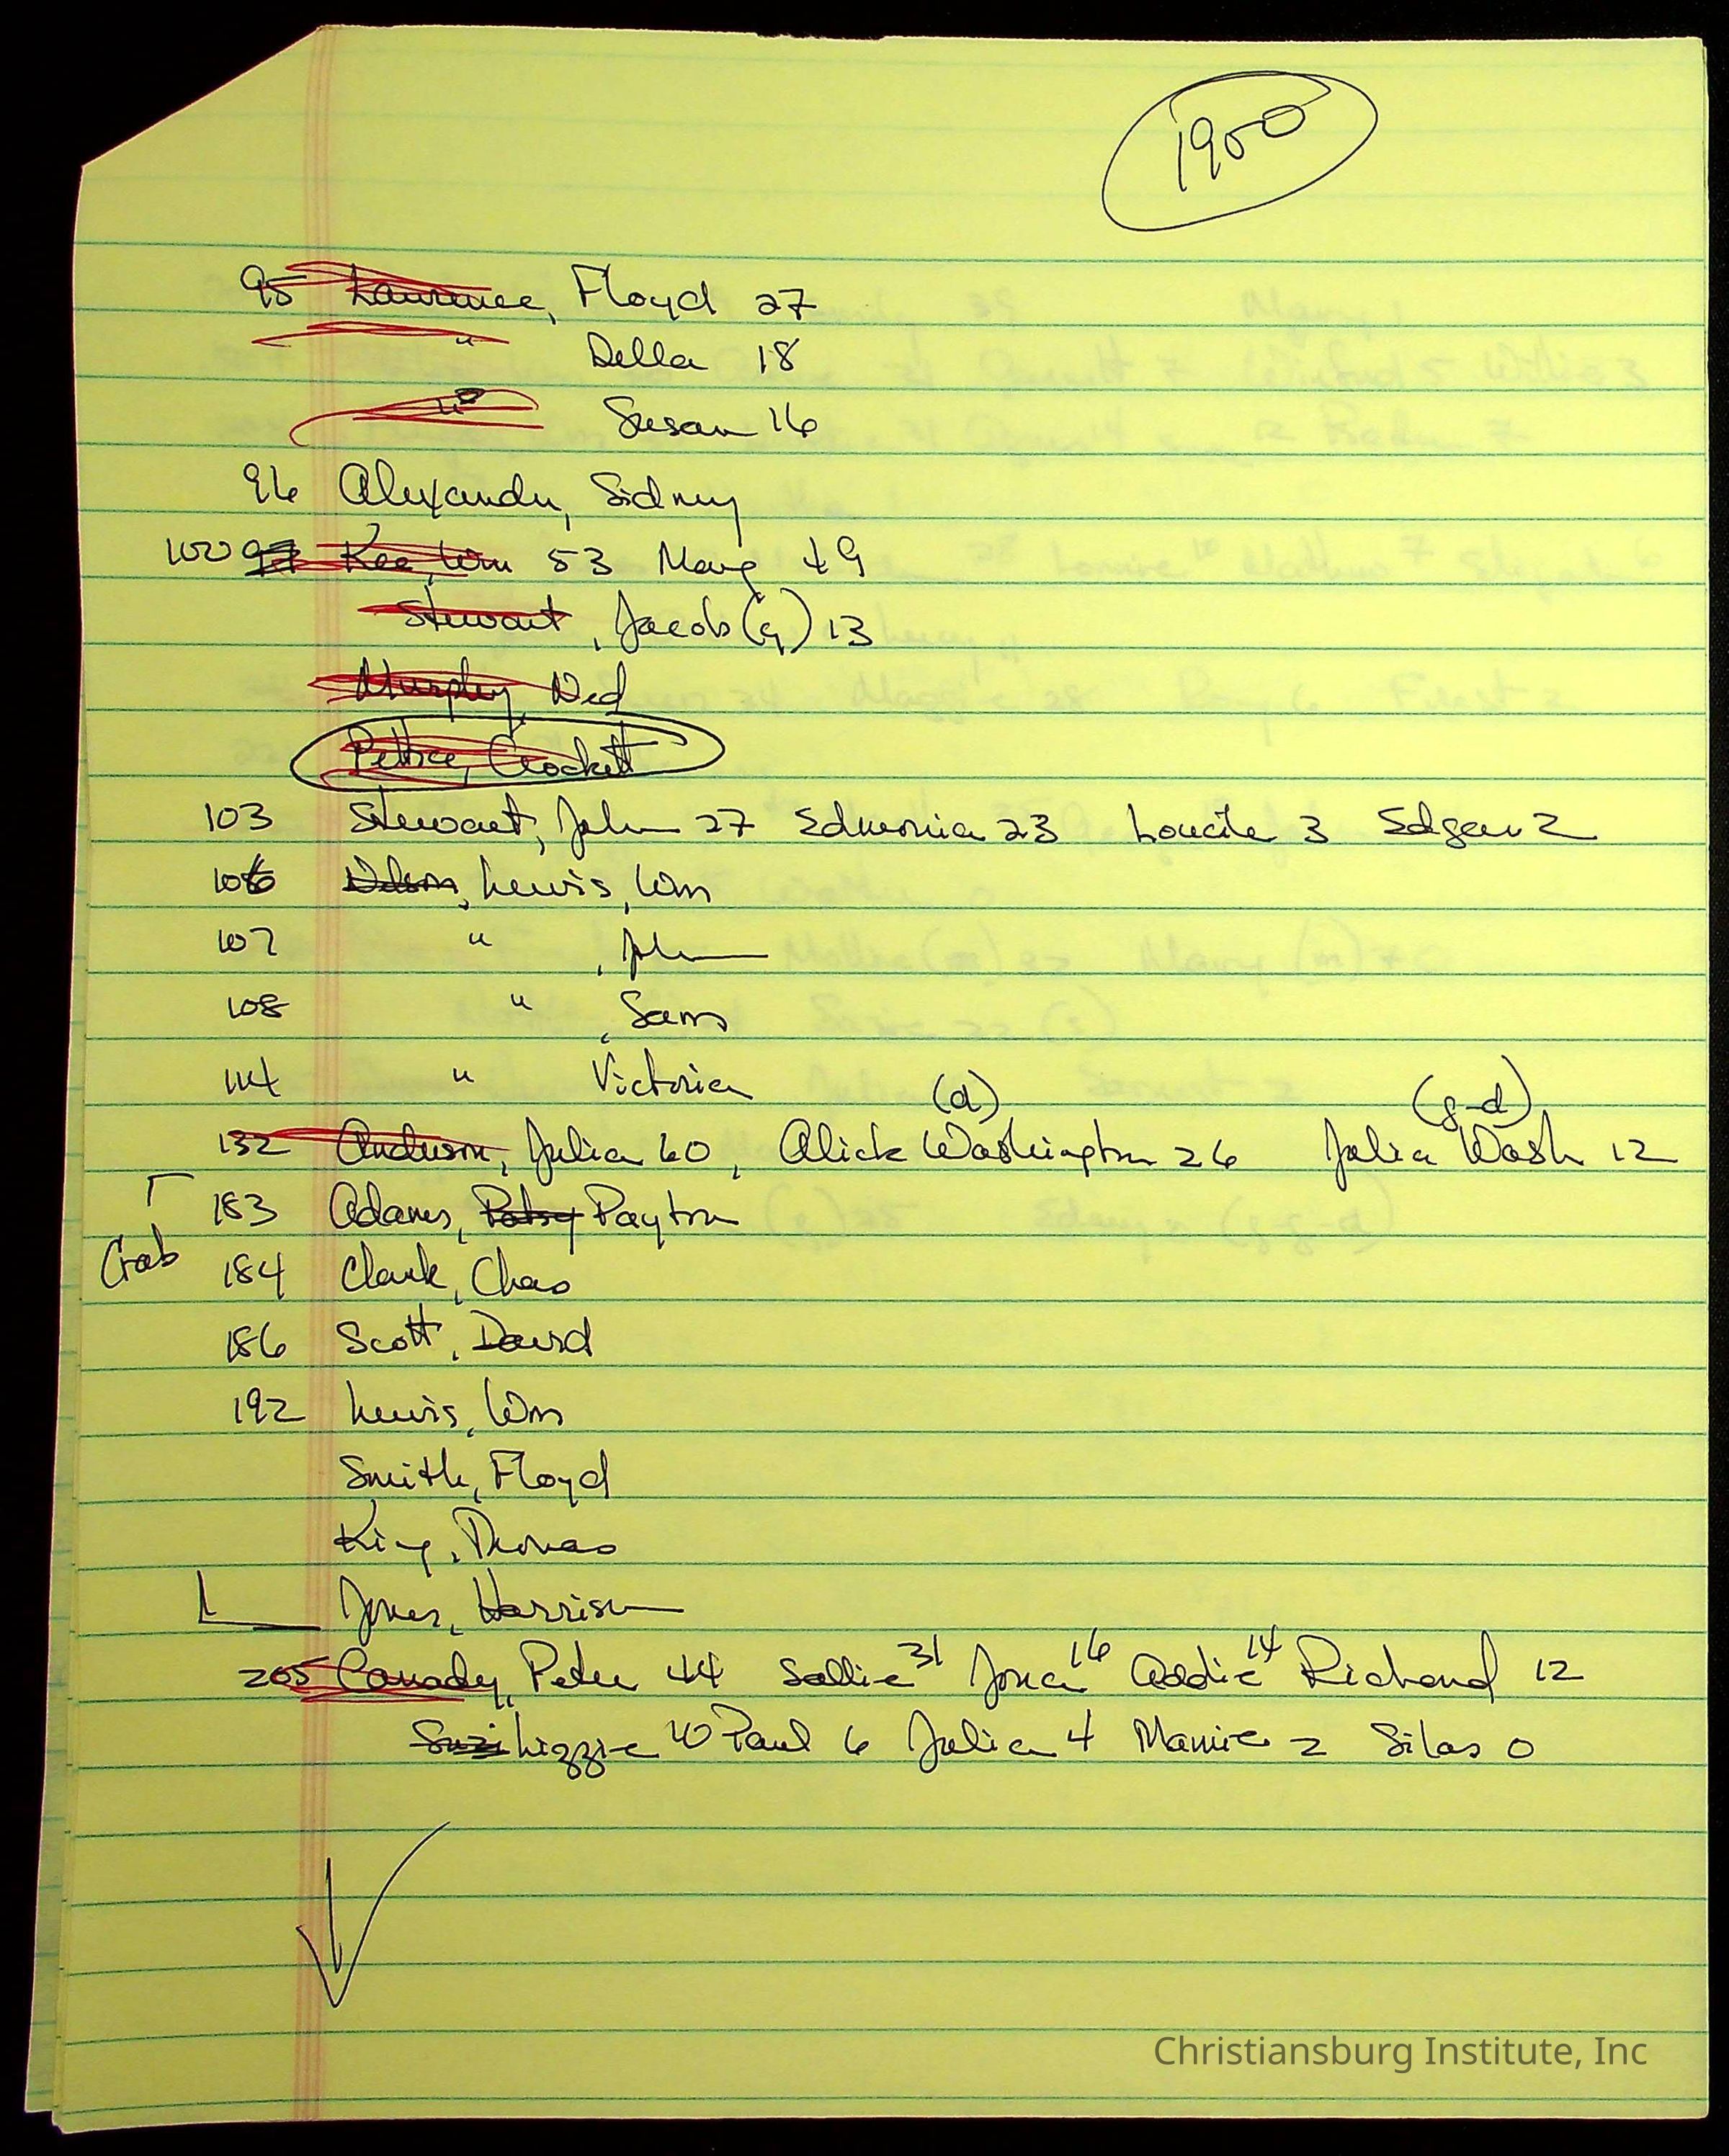 1900
95 Lawrence, Floyd 27
" Della 18
" Susan 16
96 Alexander, Sidney
100 97 Kee, Wm 53 Mary 49
Stewart, Jacob (g) 13
Murphy, Ned
Crockett
103 Stewart, John 27 Edmonia 23 Loucile 3 Edgar 2
106 Nelson, Lewis, Wm
107 " , John
108 " , Sam
114 " Victoria
(d) (g-d)
132 Anderson, Julia 60, Alick Washington 26 Julia Wash 12
183 Adams, Patsy Payton
Crab 184 Clark, Chas
186 Scott, David
192 Lewis, Wm
Smith, Floyd
King, Thomas
Jones, Harrison
205 Canady, Peter 44 Sallie 31 16 Addie 14 Richard 12
Suzi Lizzie 10 Paul 6 Julia 4 Mamie 2 Silas 0
Christiansburg Institute, Inc